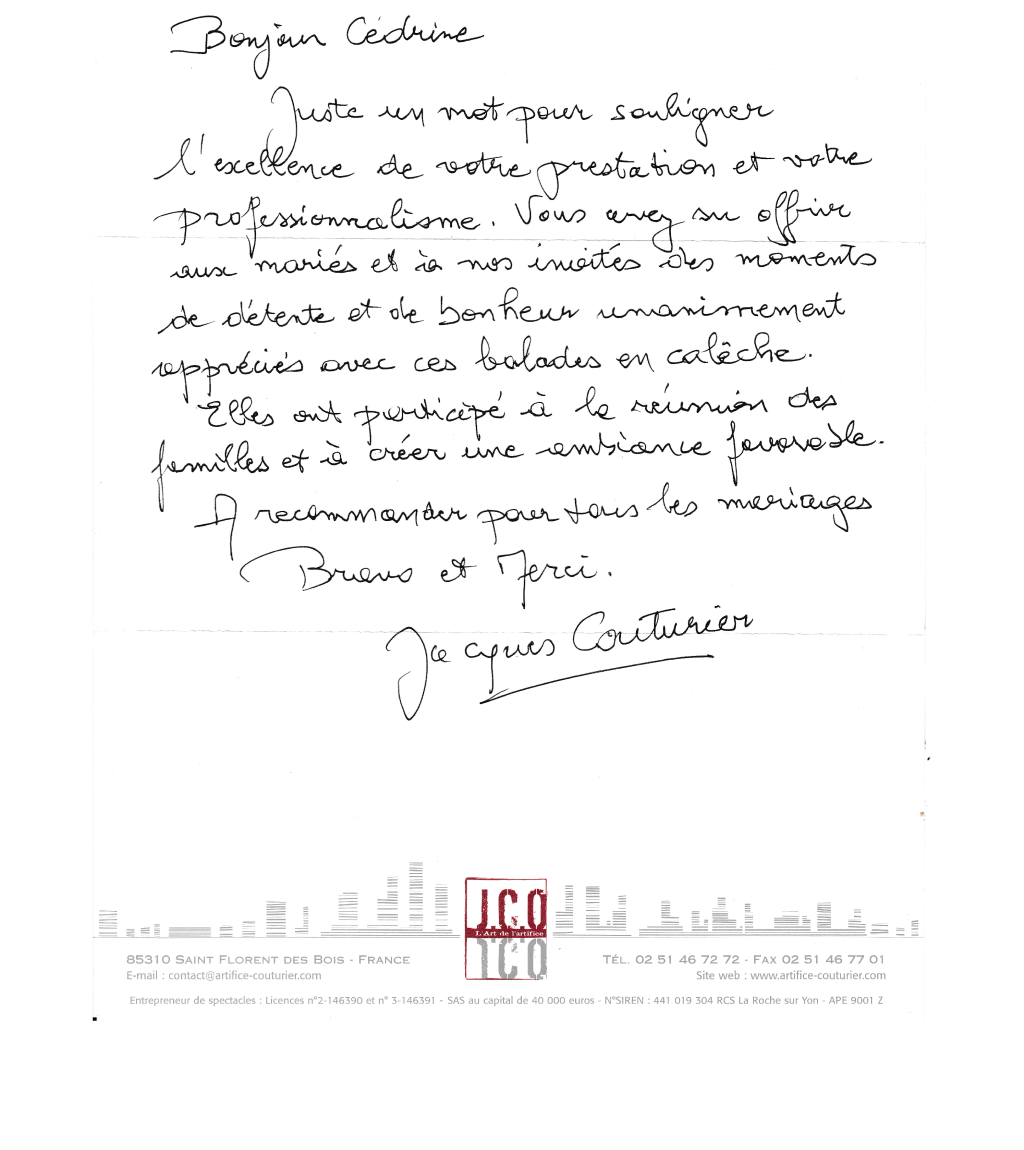 Bonjour Cédrine
Juste un mot pour souligner
l'excellence de votre prestation et votre
professionnalisme. Vous avez su offrir
aux mariés et à nos invités des moments
de détente et de bonheur unanimement
appréciés avec ces balades en calèche.
Elles ont participé à la réunion des
familles et à créer une ambiance favorable.
A recommander pour tous les mariages
Bravo et Merci.
Jacques Couturier
J.C.O
L'Art de l'artifice
85310 SAINT FLORENT DES BOIS - FRANCE
E-mail : contact@artifice-couturier.com
TÉL. 02 51 46 72 72 - FAX 02 51 46 77 01
Site web : www.artifice-couturier.com
Entrepreneur de spectacles : Licences n°2-146390 et n° 3-146391 - SAS au capital de 40 000 euros - N°SIREN : 441 019 304 RCS La Roche sur Yon - APE 9001 Z